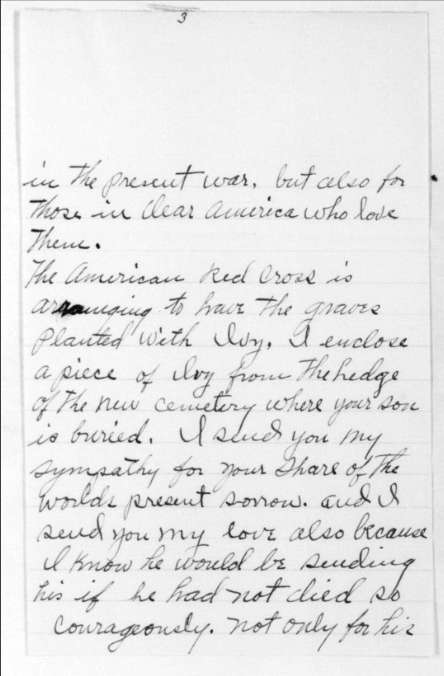 3
in the present war, but also for
those in dear America who love
them.
The American Red Cross is
arranging to have the graves
planted with Ivy, I enclose
a piece of Ivy from the hedge
of the new cemetery where your son
is buried. I send you my
sympathy for your share of the
worlds present sorrow. and I
send you my love also because
I know he would be sending
his if he had not died so
courageously. not only for his